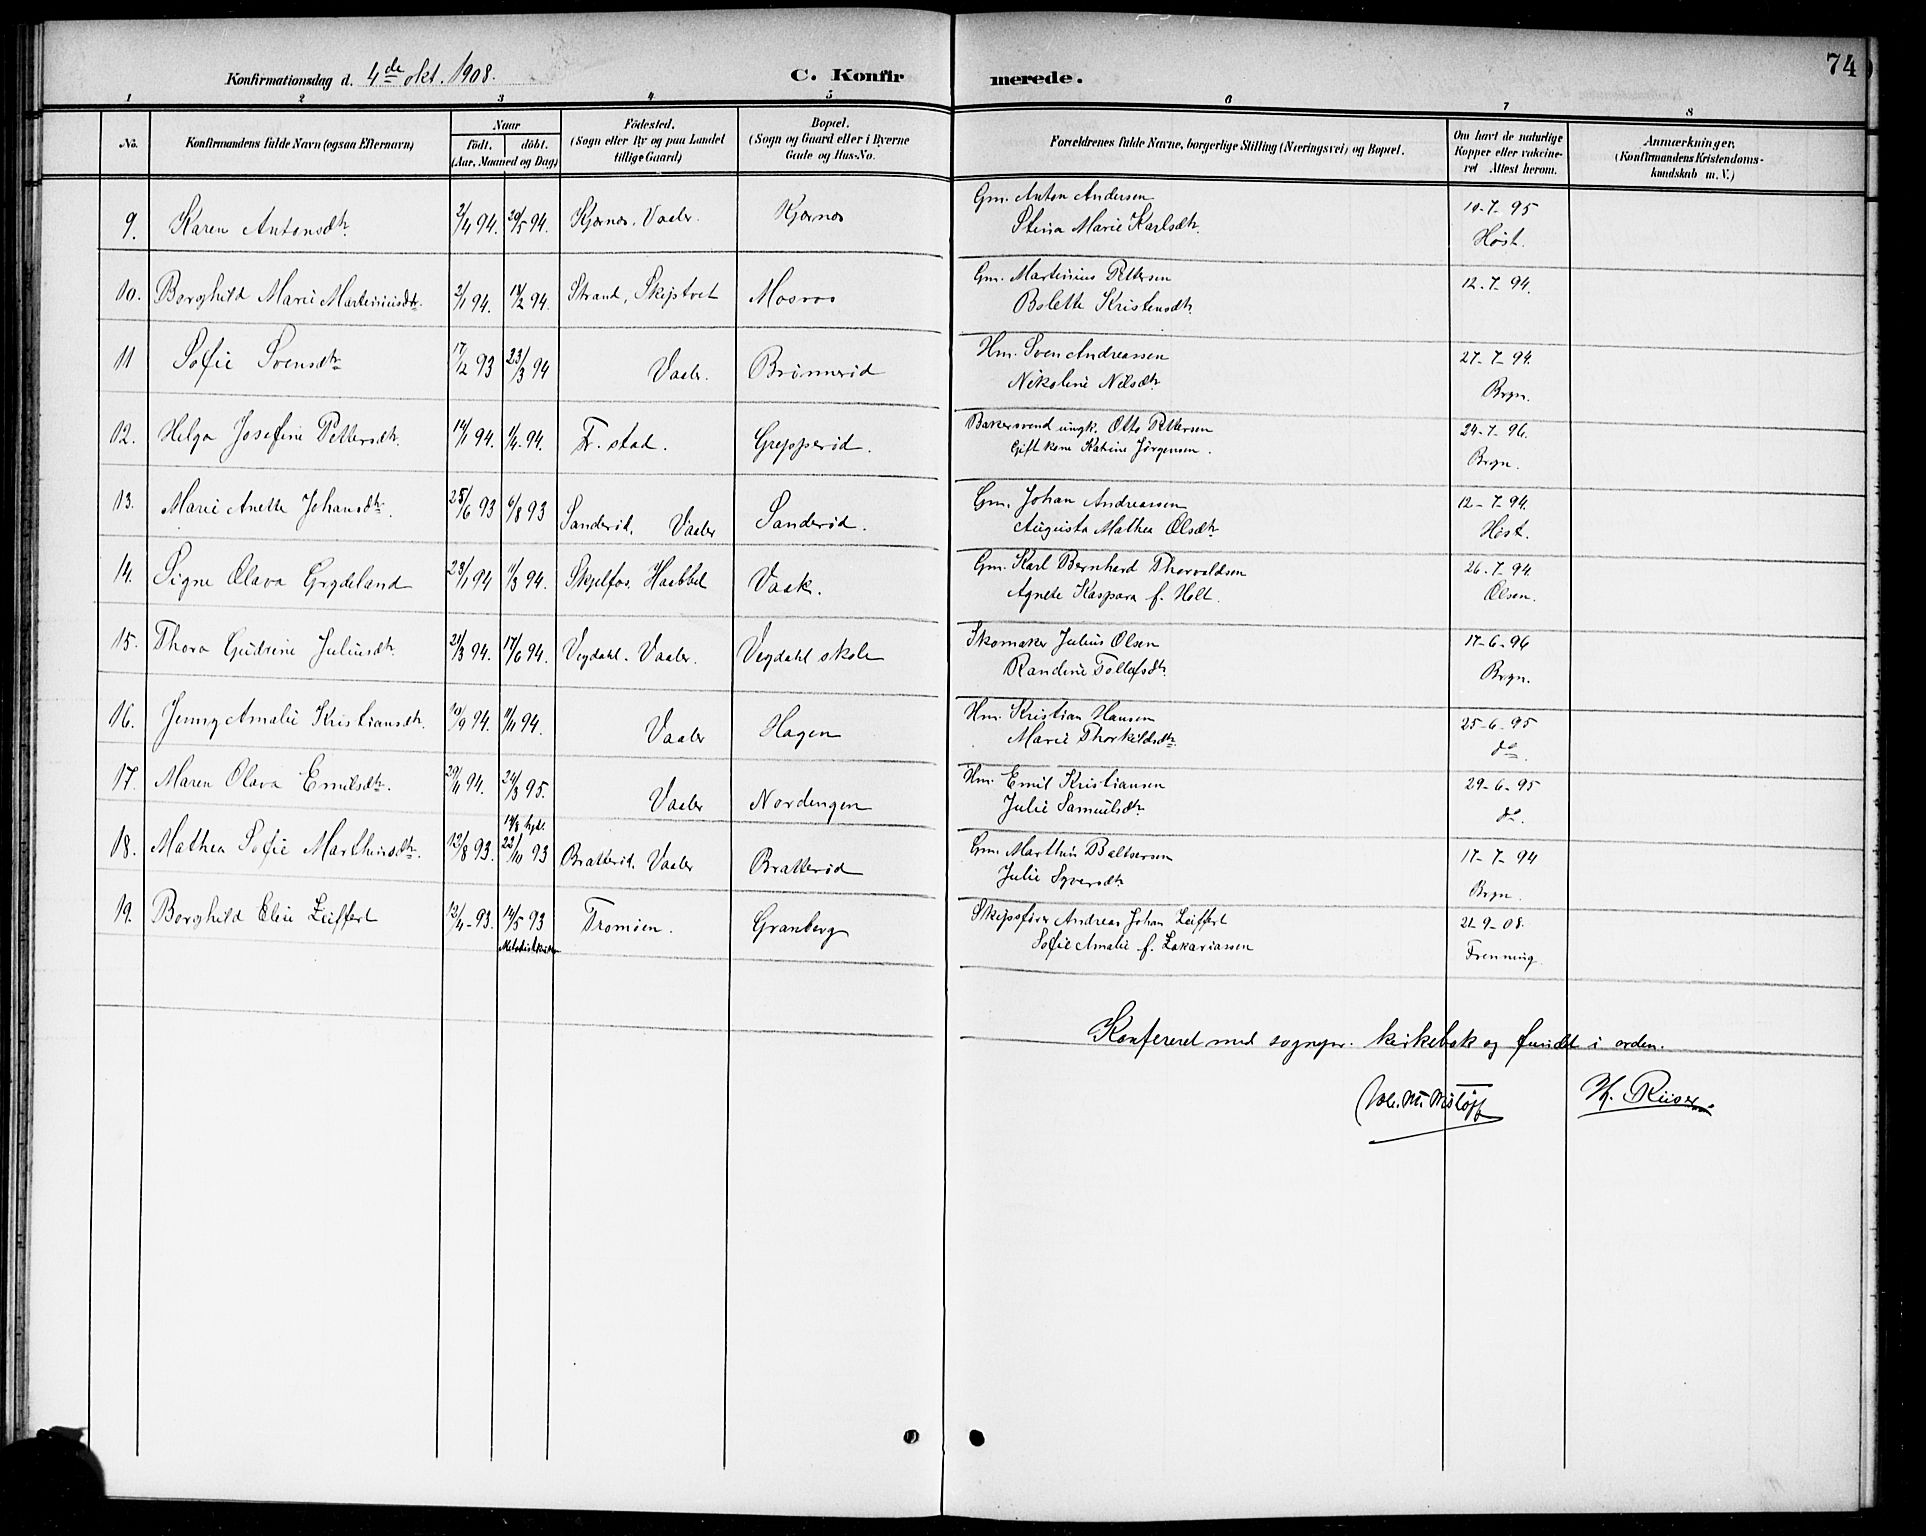 74
Konfirmationsdag d. 4de okt. 1908.
C. Konfirmerede.
1 2 3 4 5 6 7 8
No.
Konfirmandens fulde Navn (ogsaa Efternavn)
Naar
Født. døbt.
(Aar, Maaned og Dag)
Fødested.
(Sogn eller By og paa Landet
tillige Gaard)
Bopæl.
(Sogn og Gaard eller i Byerne
Gade og Hus-No.
Forældrenes fulde Navne, borgerlige Stilling (Næringsvei) og Bopæl.
Om havt de naturlige
Kopper eller vakcine-
ret Attest herom.
Anmærkninger,
(Konfirmandens Kristendoms-
kundskab m. V.)
9. Karen Antonsdtr. 2/4 94. 20/5 94. Kjærnes, Vaaler. Kjærnes Gm. Anton Andersen 10-7-95
Stina Marie Karlsdtr. Høst.
10. Borghild Marie Martiniusdtr. 2/1 94. 18/2 94. Strand, Skiptvet Mosvos Gm. Martinius Pettersen 12-7-94.
Bolette Kristensdtr.
11 Sofie Svensdtr 17/12 93 23/3 94 Vaaler. Brönnerød Hm. Sven Andreassen 27-7-94.
Nikoline Nilsdtr. Brgn.
12. Helga Josefine Pettersdtr. 14/1 94. 1/4 94. Fr. stad. Grepperød. Bakersvend ungk. Otto Pettersen 24-7-96.
Gift kone Katrine Jörgensen. Brgn.
13. Marie Anette Johansdtr. 25/6 93 6/8 93 Sanderød, Vaaler Sanderød. Gm. Johan Andreassen 12-7-94.
Augusta Mathea Olsdtr. Høst.
14. Signe Olava Grydeland 23/1 94 11/3 94. Skjelfos, Haabbøl Vaak. Gm. Karl Bernhard Thorvaldsen 26-7-94.
Agnete Kaspara f. Holt. Olsen.
15. Thora Gudrine Juliusdtr. 21/3 94. 17/6 94. Vegdahl. Vaaler. Vegdahl skole Skomaker Julius Olsen 17-6-96
Randine Tollefsdtr. Brgn.
16. Jenny Amalie Kristiansdtr. 10/9 94. 11/11 94. Vaaler Hagen Hm. Kristian Hansen 25-6-95
Marie Thorkildsdtr. do.
17. Maren Olava Emilsdtr. 29/11 94. 24/3 95. Vaaler Nordengen Hm. Emil Kristiansen 29-6-95
Julie Samuelsdtr. do.
18. Mathea Sofie Marthinsdtr. 12/8 93. hjd. 22/10 93 Bratterød. Vaaler Bratterød Gm. Marthin Baltsersen 17-7-94
Julie Syversdtr Brgn.
19. Borghild Elise Leiffert 12/4-93. 14/5 93 Tromöen. Granberg Skipsfører Andreas Johan Leiffert 21-9-08.
Metodistkirken Sofie Amalie f. Zakariassen Frenning
Konfereret med sognepr. kirkebok og fundet i orden.